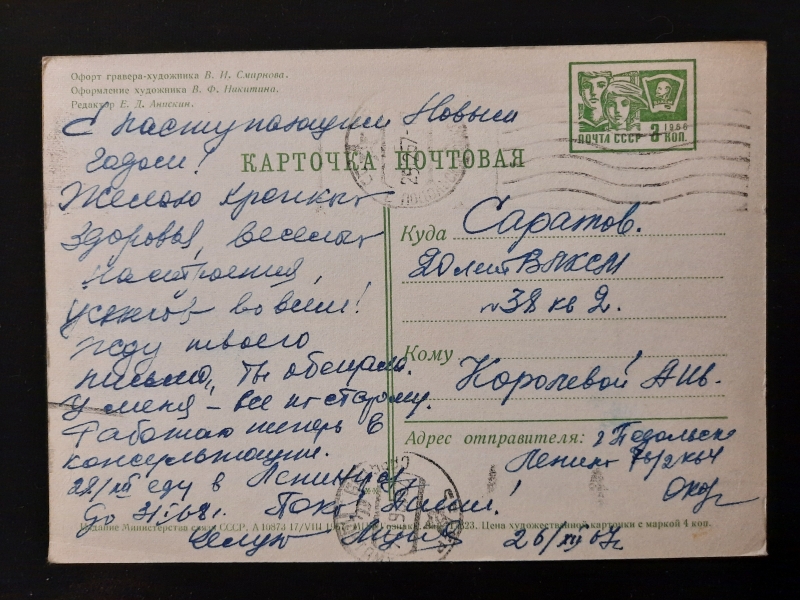 Офорт гравера-художника В. И. Смирнова.
Оформление художника В. Ф. Никитина.
Редактор Е. Д. Анискин.
ПОЧТА СССР 3 КОП. 1966
КАРТОЧКА ПОЧТОВАЯ
С наступающим Новым
годом!
Желаю крепких
здоровья, веселых
настроения,
успехов во всем!
Жду твоего
письма, ты обещала.
У меня – все по старому.
Работаю теперь в
консультации.
28/XII еду в Ленинград
до 31/68г. Пока!
Целую
Куда Саратов.
20 лет ВЛКСМ
№38 кв 2.
Кому
Королевой Ан.
Адрес отправителя: г Подольск
Ленинг 76/2 кв4
26/XII 67г
Издание Министерства связи СССР. А 10873 17/VIII Цена художественной карточки с маркой 4 коп.